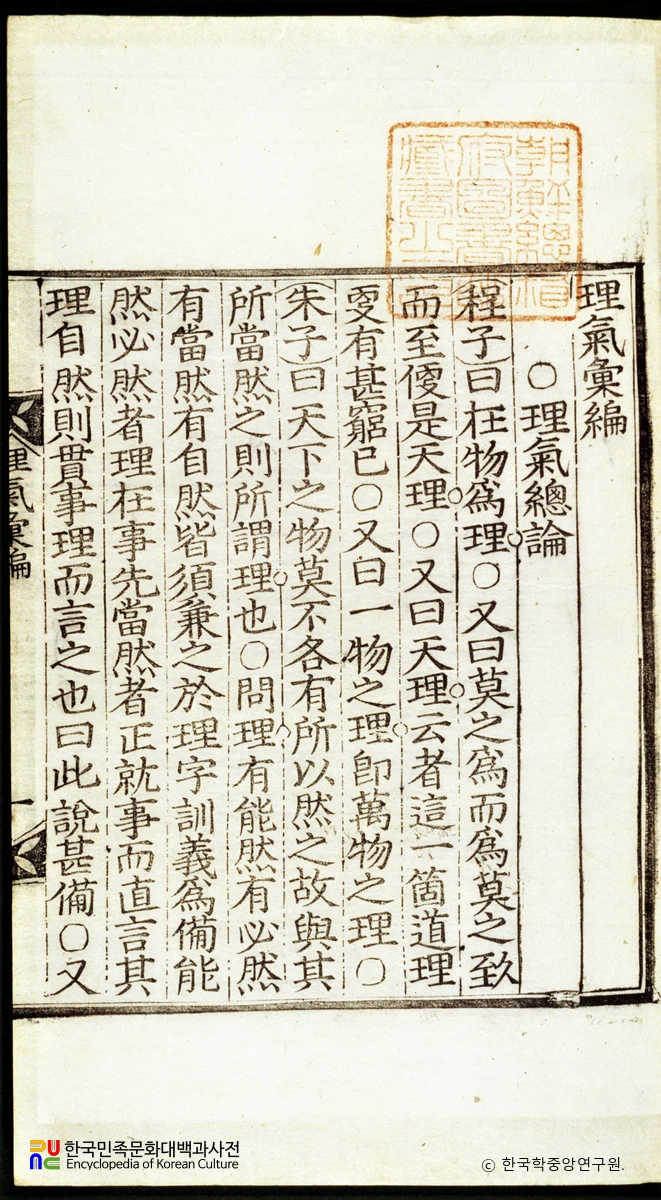 朝鮮總督
府圖書館
藏書之印
理氣彙編
○理氣總論
(程子)曰在物爲理○又曰莫之爲而爲莫之致
而至便是天理○又曰天理云者這一箇道理
更有甚窮已○又曰一物之理卽萬物之理○
(朱子)曰天下之物莫不各有所以然之故與其
所當然之則所謂理也○問理有能然有必然
有當然有自然皆須兼之於理字訓義爲備能
然必然者理在事先當然者正就事而直言其
理自然則貫事理而言之也曰此說甚備○又
理氣彙編
一
한국민족문화대백과사전
Encyclopedia of Korean Culture
© 한국학중앙연구원.